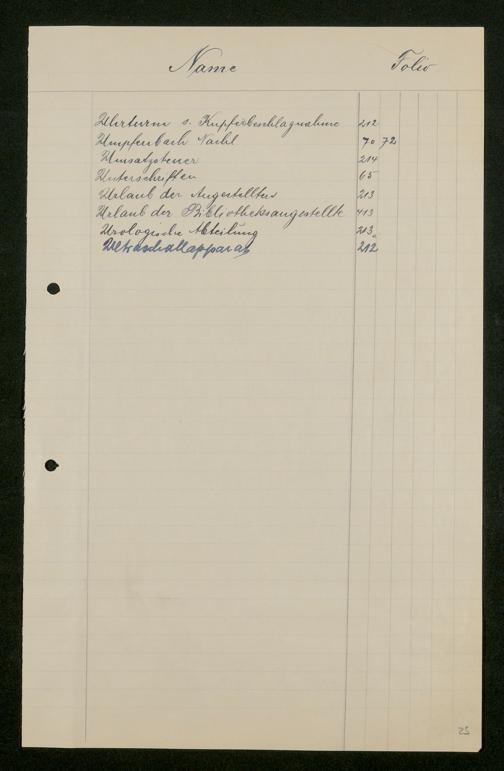 Name Folio
Uhrturm s. Kupferbeschlagnahme 212
Umpfenbach Nachl 70 72
Umsatzsteuer 214
Unterschriften 65
Urlaub der Angestellten 213
Urlaub der Bibliotheksangestellte 413
Urologische Abteilung 213
Ultraschallapparat 212
25